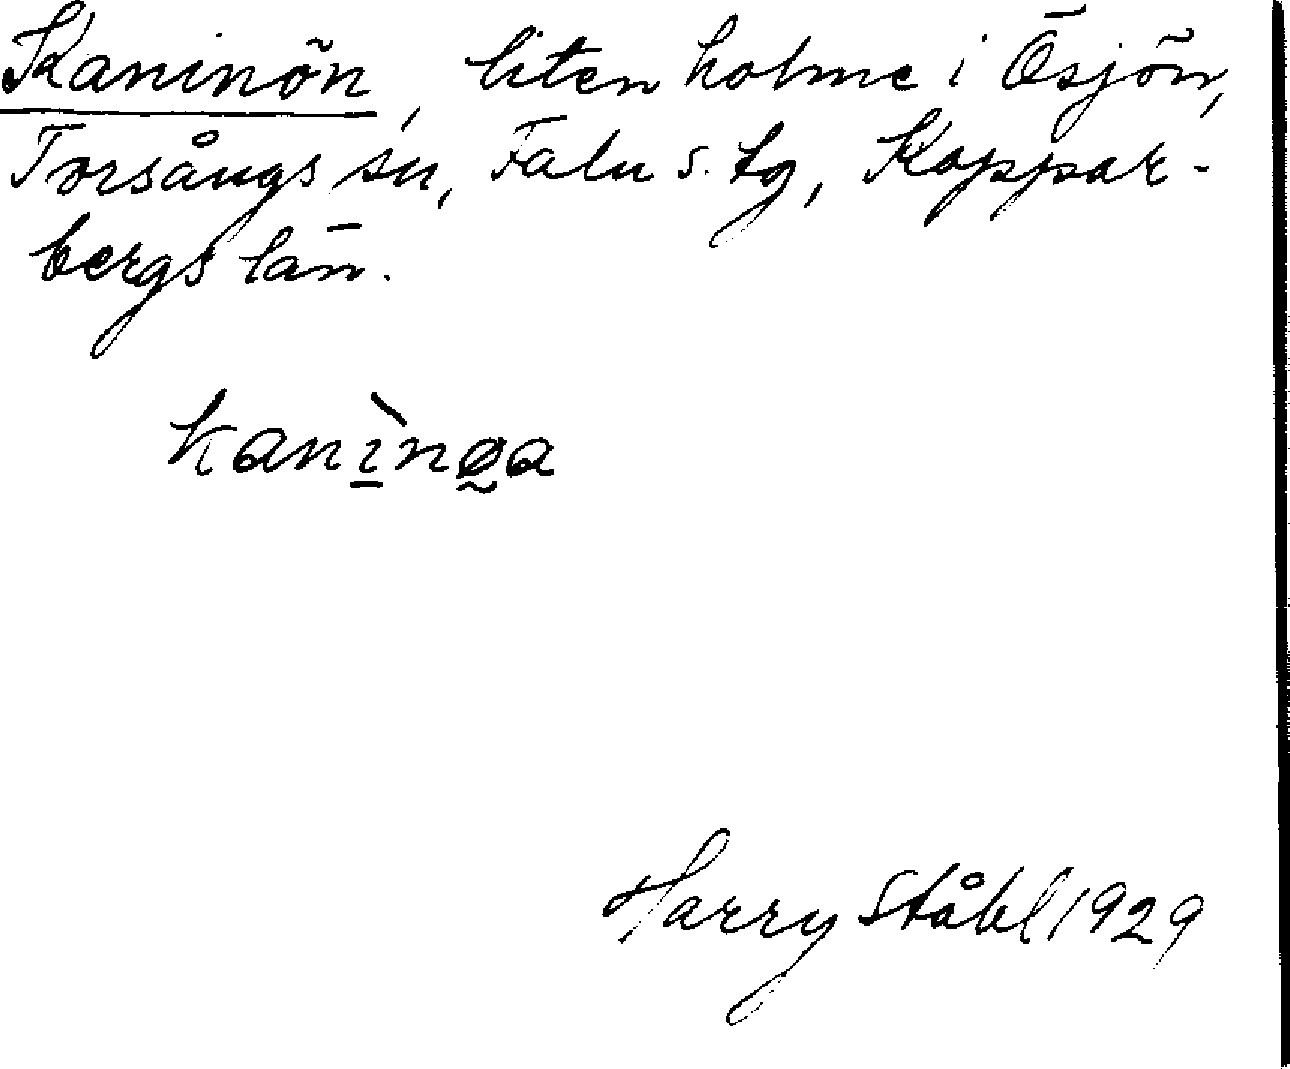 Kaninön, liten holme i Ösjön,
Torsångs sn, Falu s. tg, Koppar-
bergs län.
kanı̱̀nø̰a
Harry Ståhl 1929